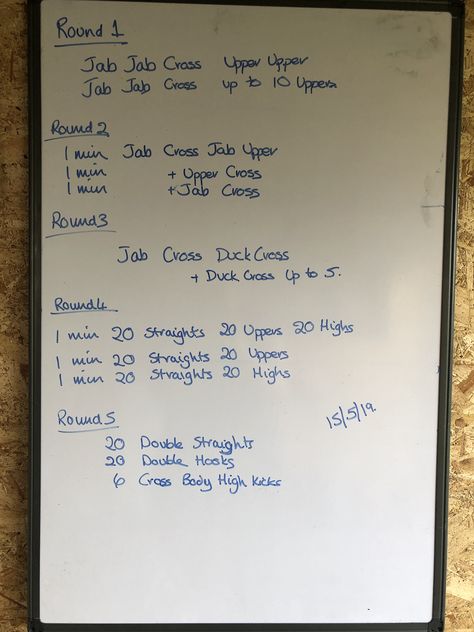 Round 1
Jab Jab Cross Upper Upper
Jab Jab Cross up to 10 Uppers
Round 2
1 min Jab Cross Jab Upper
1 min + Upper Cross
1 min + Jab Cross
Round 3
Jab Cross Duck Cross
+ Duck Cross Up to 5.
Round 4
1 min 20 Straights 20 Uppers 20 Highs
1 min 20 Straights 20 Uppers
1 min 20 Straights 20 Highs
Round 5
15/5/19.
20 Double Straights
20 Double Hooks
6 Cross Body High Kicks